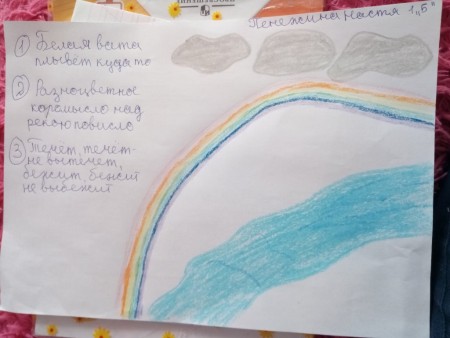 ПРОСВЕЩЕНИЕ
Пенежина Настя 1 „Б"
1 Белая вата
плывёт куда то
2 Разноцветное
коромысло над
рекою повисло
3 Течет, течет-
не вытечет,
бежит, бежит
не выбежит